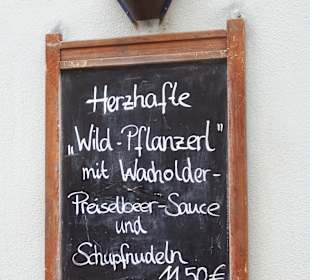 Herzhafte
„Wild-Pflanzerl"
mit Wacholder-
Preiselbeer-Sauce
und
Schupfnudeln
11.50€